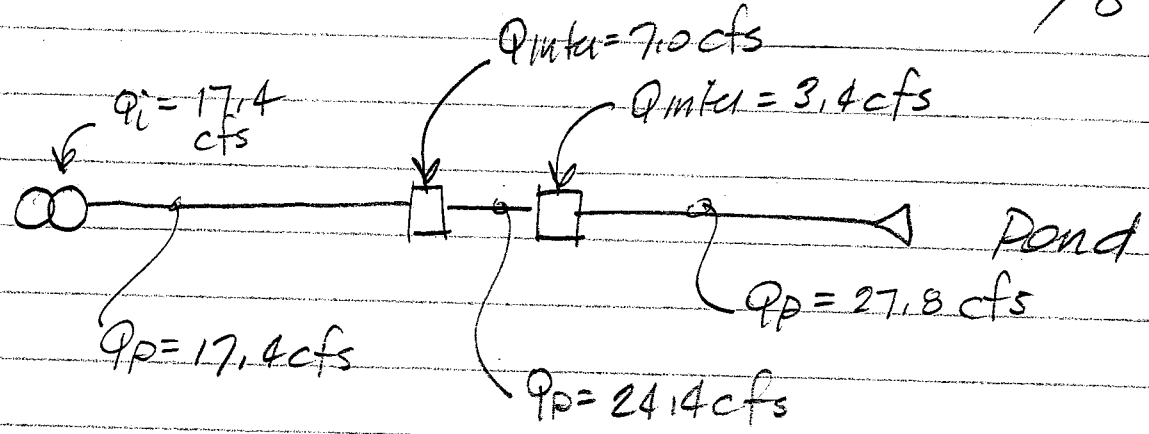 Qinlet = 7.0 cfs
Qi = 17.4
cfs
Qinlet = 3.4 cfs
Pond
Qp = 27.8 cfs
Qp = 17.4 cfs
Qp = 24.4 cfs